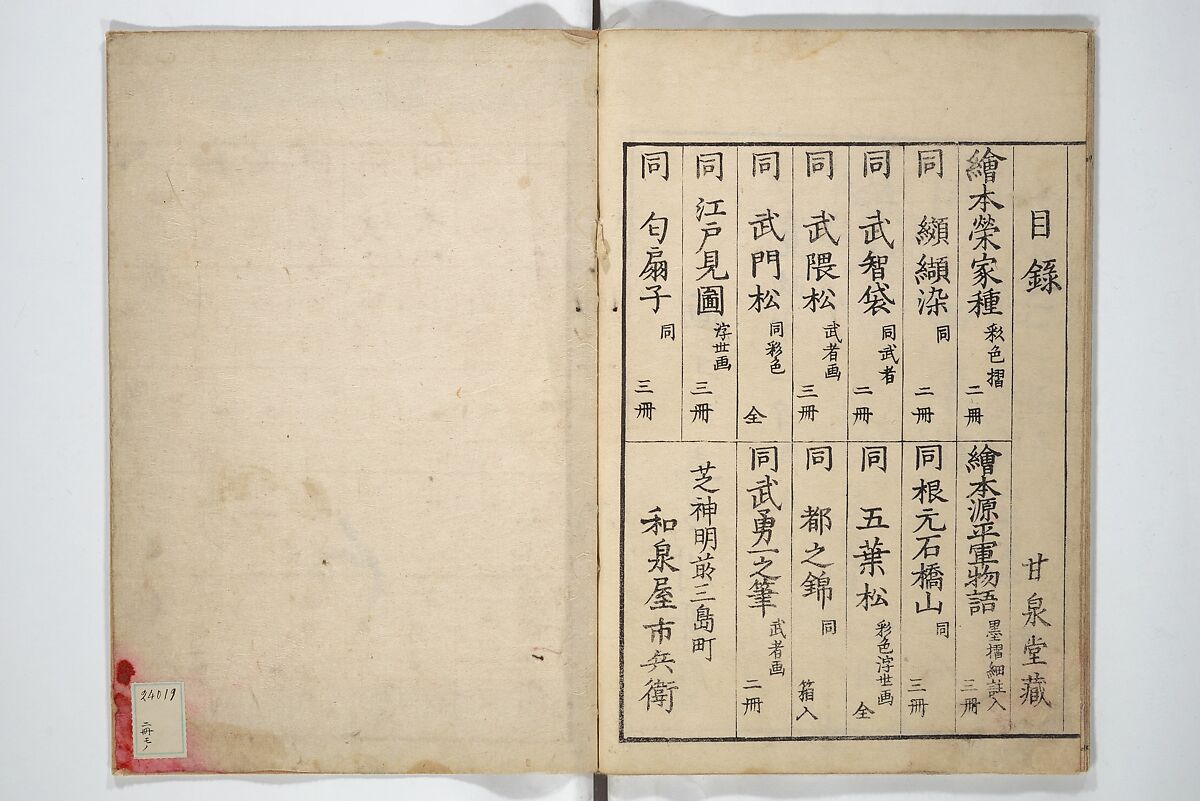 目錄 甘泉堂藏
繪本榮家種 彩色摺 二冊
同 纐纈染 同 二冊
同 武智袋 同武者 二冊
同 武隈松 武者画 三冊
同 武門松 同彩色 全
同 江戸見圖 浮世画 三冊
同 匂扇子 同 三冊
繪本源平軍物語 墨摺細註入 三冊
同 根元石橋山 同 三冊
同 五葉松 彩色浮世画 全
同 都之錦 同 箱入
同 武勇一之筆 武者画 二冊
芝神明前三島町
和泉屋市兵衛
24019
二冊モノ